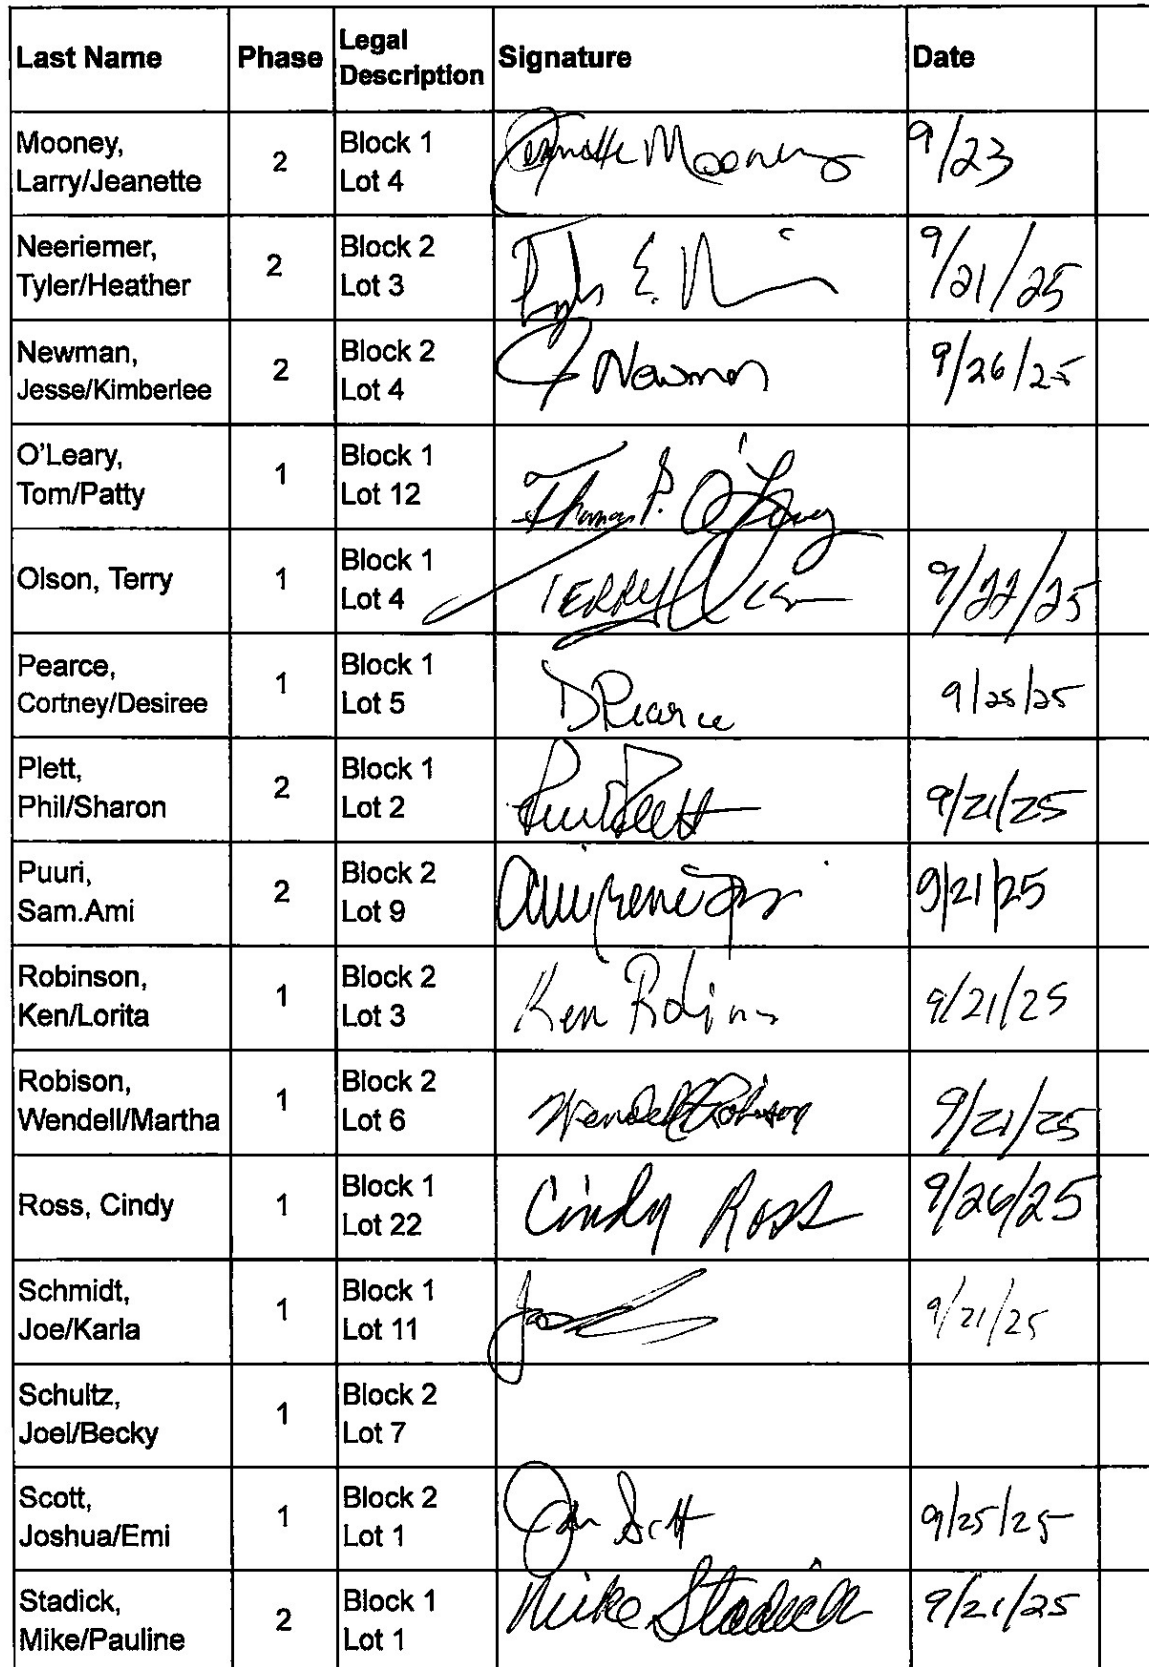 Last Name Phase Legal Description Signature Date
Mooney, Larry/Jeanette 2 Block 1 Lot 4 Jeanette Mooney 9/23
Neeriemer, Tyler/Heather 2 Block 2 Lot 3 Tyler E. 9/21/25
Newman, Jesse/Kimberlee 2 Block 2 Lot 4 J Newman 9/26/25
O'Leary, Tom/Patty 1 Block 1 Lot 12 Thomas P. O'Leary
Olson, Terry 1 Block 1 Lot 4 TERRY Olson 9/22/25
Pearce, Cortney/Desiree 1 Block 1 Lot 5 D Pearce 9/25/25
Plett, Phil/Sharon 2 Block 1 Lot 2 Plett 9/21/25
Puuri, Sam.Ami 2 Block 2 Lot 9 9/21/25
Robinson, Ken/Lorita 1 Block 2 Lot 3 Ken Robinson 9/21/25
Robison, Wendell/Martha 1 Block 2 Lot 6 Wendell Robison 9/21/25
Ross, Cindy 1 Block 1 Lot 22 Cindy Ross 9/26/25
Schmidt, Joe/Karla 1 Block 1 Lot 11 9/21/25
Schultz, Joel/Becky 1 Block 2 Lot 7
Scott, Joshua/Emi 1 Block 2 Lot 1 Scott 9/25/25
Stadick, Mike/Pauline 2 Block 1 Lot 1 Mike Stadick 9/21/25